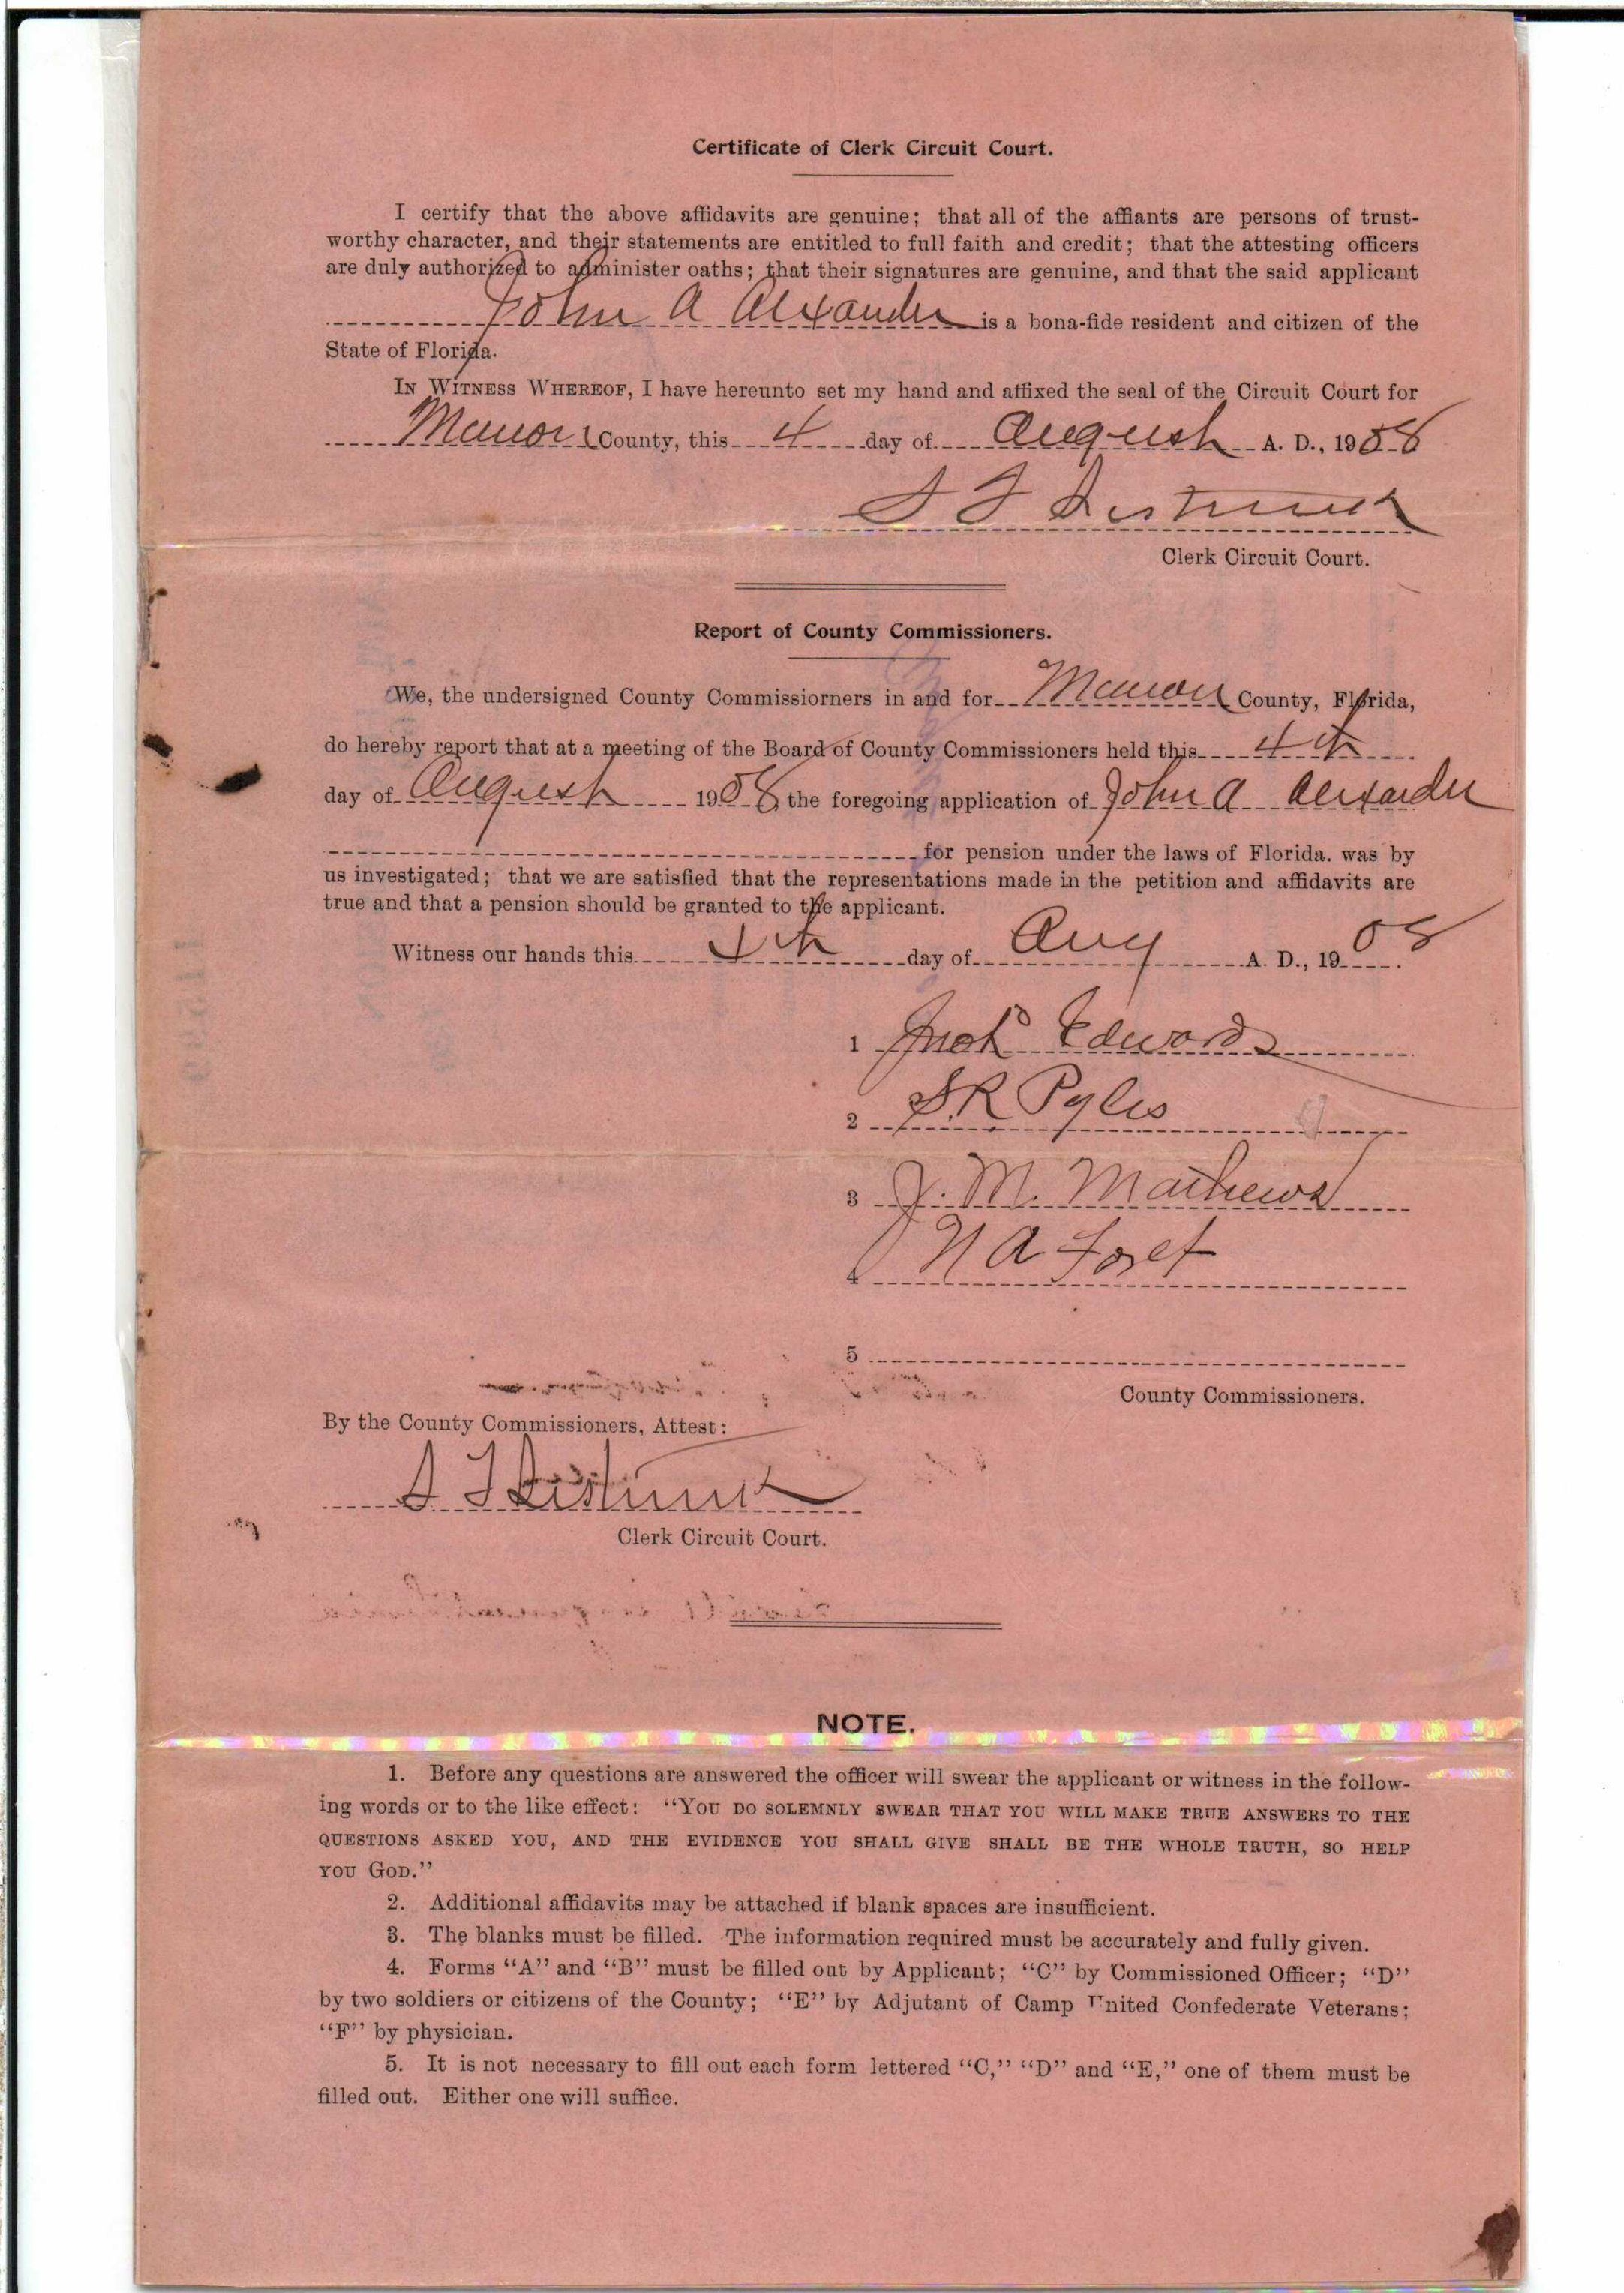 Certificate of Clerk Circuit Court.
I certify that the above affidavits are genuine; that all of the affiants are persons of trust-
worthy character, and their statements are entitled to full faith and credit; that the attesting officers
are duly authorized to administer oaths; that their signatures are genuine, and that the said applicant
John A Alexander is a bona-fide resident and citizen of the
State of Florida.
IN WITNESS WHEREOF, I have hereunto set my hand and affixed the seal of the Circuit Court for
Marion County, this 4 day of August A. D., 1908
S T Sistrunk
Clerk Circuit Court.
Report of County Commissioners.
We, the undersigned County Commissiorners in and for Marion County, Florida,
do hereby report that at a meeting of the Board of County Commissioners held this 4th
day of August 1908, the foregoing application of John A Alexander
for pension under the laws of Florida. was by
us investigated; that we are satisfied that the representations made in the petition and affidavits are
true and that a pension should be granted to the applicant.
Witness our hands this 4th day of Aug A. D., 1908.
1 Edwards
2 S.R Pyles
3 J. M. Mathews
4 N A Fort
5
County Commissioners.
By the County Commissioners, Attest:
S T Sistrunk
Clerk Circuit Court.
NOTE.
1. Before any questions are answered the officer will swear the applicant or witness in the follow-
ing words or to the like effect: "YOU DO SOLEMNLY SWEAR THAT YOU WILL MAKE TRUE ANSWERS TO THE
QUESTIONS ASKED YOU, AND THE EVIDENCE YOU SHALL GIVE SHALL BE THE WHOLE TRUTH, SO HELP
YOU GOD."
2. Additional affidavits may be attached if blank spaces are insufficient.
3. The blanks must be filled. The information required must be accurately and fully given.
4. Forms "A" and "B" must be filled out by Applicant; "C" by Commissioned Officer; "D"
by two soldiers or citizens of the County; "E" by Adjutant of Camp United Confederate Veterans;
"F" by physician.
5. It is not necessary to fill out each form lettered "C," "D" and "E," one of them must be
filled out. Either one will suffice.